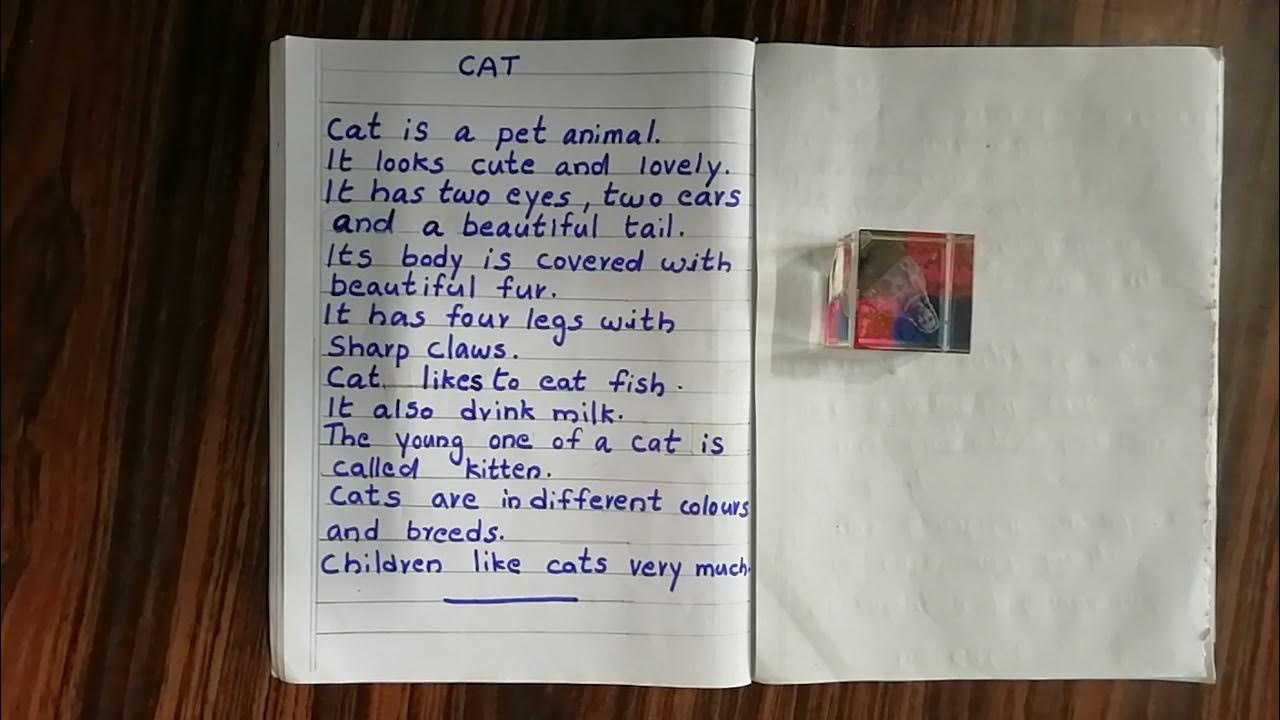 CAT
Cat is a pet animal.
It looks cute and lovely.
It has two eyes, two ears
and a beautiful tail.
Its body is covered with
beautiful fur.
It has four legs with
Sharp claws.
Cat likes to eat fish.
It also drink milk.
The young one of a cat is
called kitten.
Cats are in different colours
and breeds.
Children like cats very much.